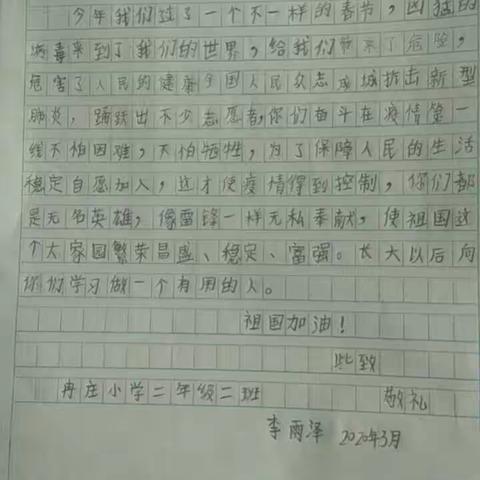 今年我们过了一个不一样的春节，凶猛的
病毒来到了我们的世界，给我们带来了危险，
危害了人民的健康全国人民众志成城抗击新型
肺炎，踊跃出不少志愿者，你们奋斗在疫情第一
线不怕困难，不怕牺牲，为了保障人民的生活
稳定自愿加入，这才使疫情得到控制，你们都
是无名英雄，像雷锋一样无私奉献，使祖国这
个大家园繁荣昌盛、稳定、富强。长大以后向
你们学习做一个有用的人。
祖国加油！
此致
冉庄小学二年级二班 敬礼
李雨泽 2020年3月